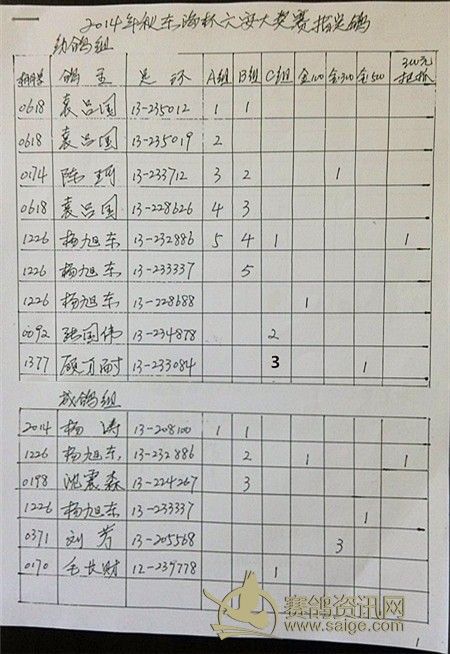 2014年秋东海杯六安大奖赛指定鸽
幼鸽组
棚号 鸽主 足环 A组 B组 C组 金100 金300 金500 300元
0618 袁吕国 13-235012 1 1
0618 袁吕国 13-235019 2
0174 陈珂 13-233712 3 2 1
0618 袁吕国 13-228626 4 3
1226 杨旭东 13-232886 5 4 1 1
1226 杨旭东 13-233337 5
1226 杨旭东 13-228688 1
0092 张国伟 13-234878 2
1377 顾万耐 13-233084 3 1
成鸽组
2014 杨涛 13-208100 1 1
1226 杨旭东 13-232886 2 1 1
0198 沈震森 13-224267 3
1226 杨旭东 13-233337 1
0371 刘芳 13-205568 3
0170 毛长财 12-239778 1
赛鸽资讯网
www.saige.com
1